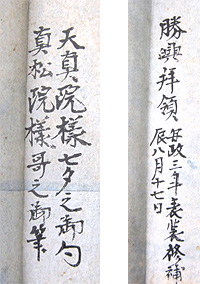 勝興拝領
安政三年表装修補
辰八月十七日
天真院様七夕之御勺
真松院様哥之御筆